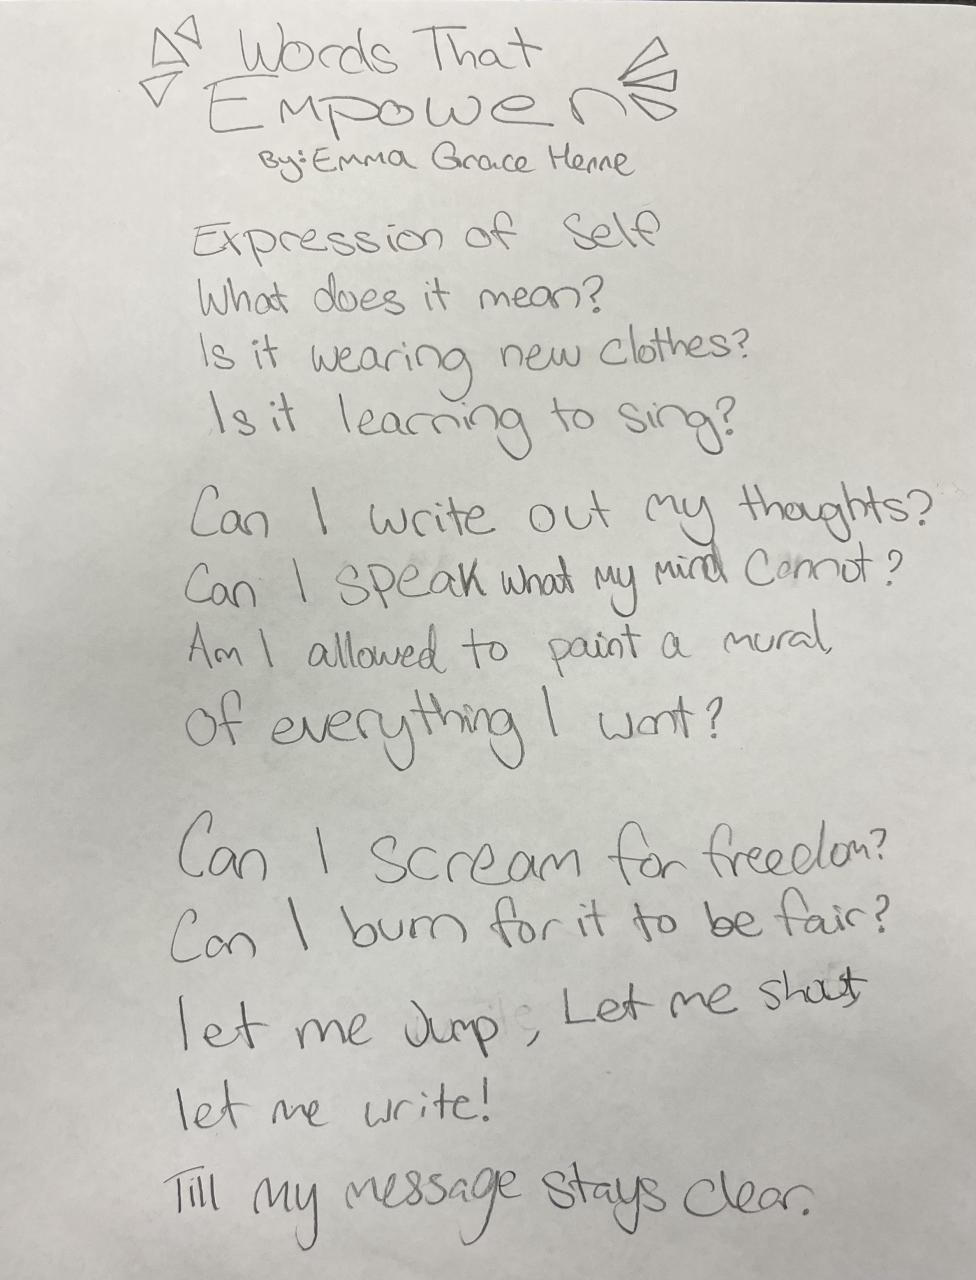 Words That
Empower
By: Emma Grace Henne
Expression of Self
What does it mean?
Is it wearing new clothes?
Is it learning to sing?
Can I write out my thoughts?
Can I speak what my mind Cannot?
Am I allowed to paint a mural,
Of everything I want?
Can I scream for freedom?
Can I burn for it to be fair?
let me Jump, Let me shout
let me write!
Till my message stays clear.